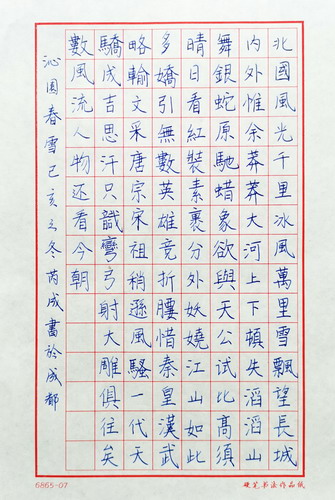 北國風光千里冰風萬里雪飄望長城
内外惟余莽莽大河上下頓失滔滔山
舞銀蛇原馳蜡象欲與天公試比高須
晴日看紅裝素裹分外妖嬈江山如此
多嬌引無數英雄竞折腰惜秦皇漢武
略輸文采唐宗宋祖稍遜風騷一代天
驕成吉思汗只識彎弓射大雕俱往矣
數風流人物还看今朝
沁園春雪己亥之冬芮成書於成都
6865-07
硬笔书法作品纸